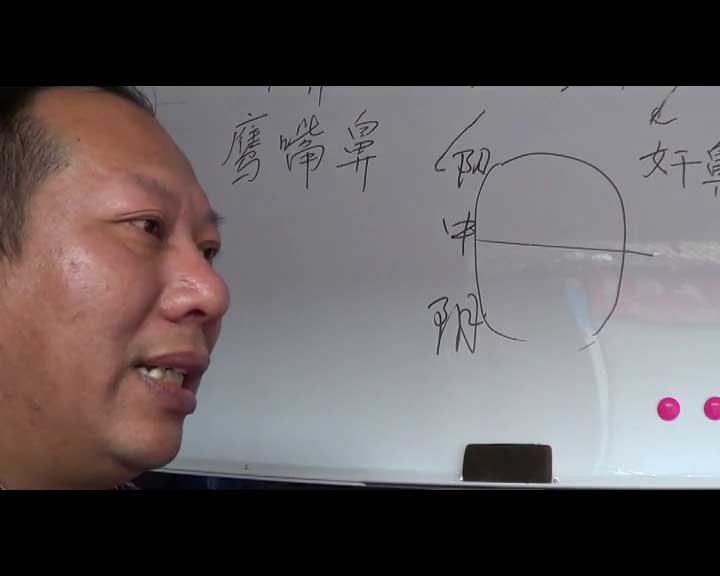 鹰嘴鼻
阳
中
阴
奸鼻